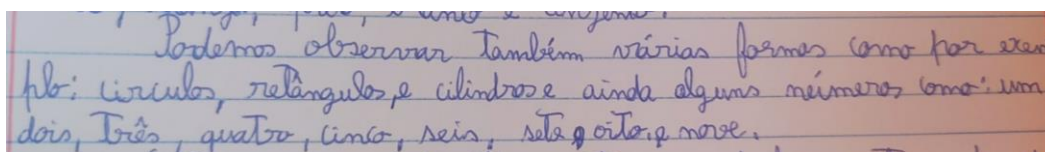 Podemos observar também várias formas como por exem
plo: circulos, retângulos, e cilindros e ainda alguns números como: um
dois, três, quatro, cinco, seis, sete, oito, e nove.